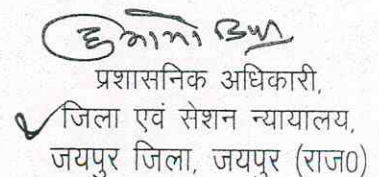 प्रशासनिक अधिकारी,
जिला एवं सेशन न्यायालय,
जयपुर जिला, जयपुर (राज0)